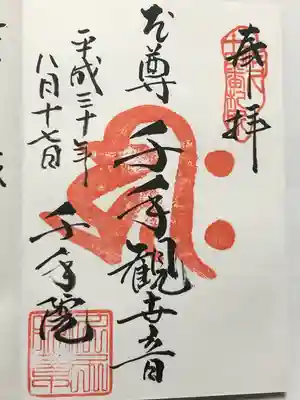 奉拝
本尊
千手観世音
平成三十年
八月十七日
千手院